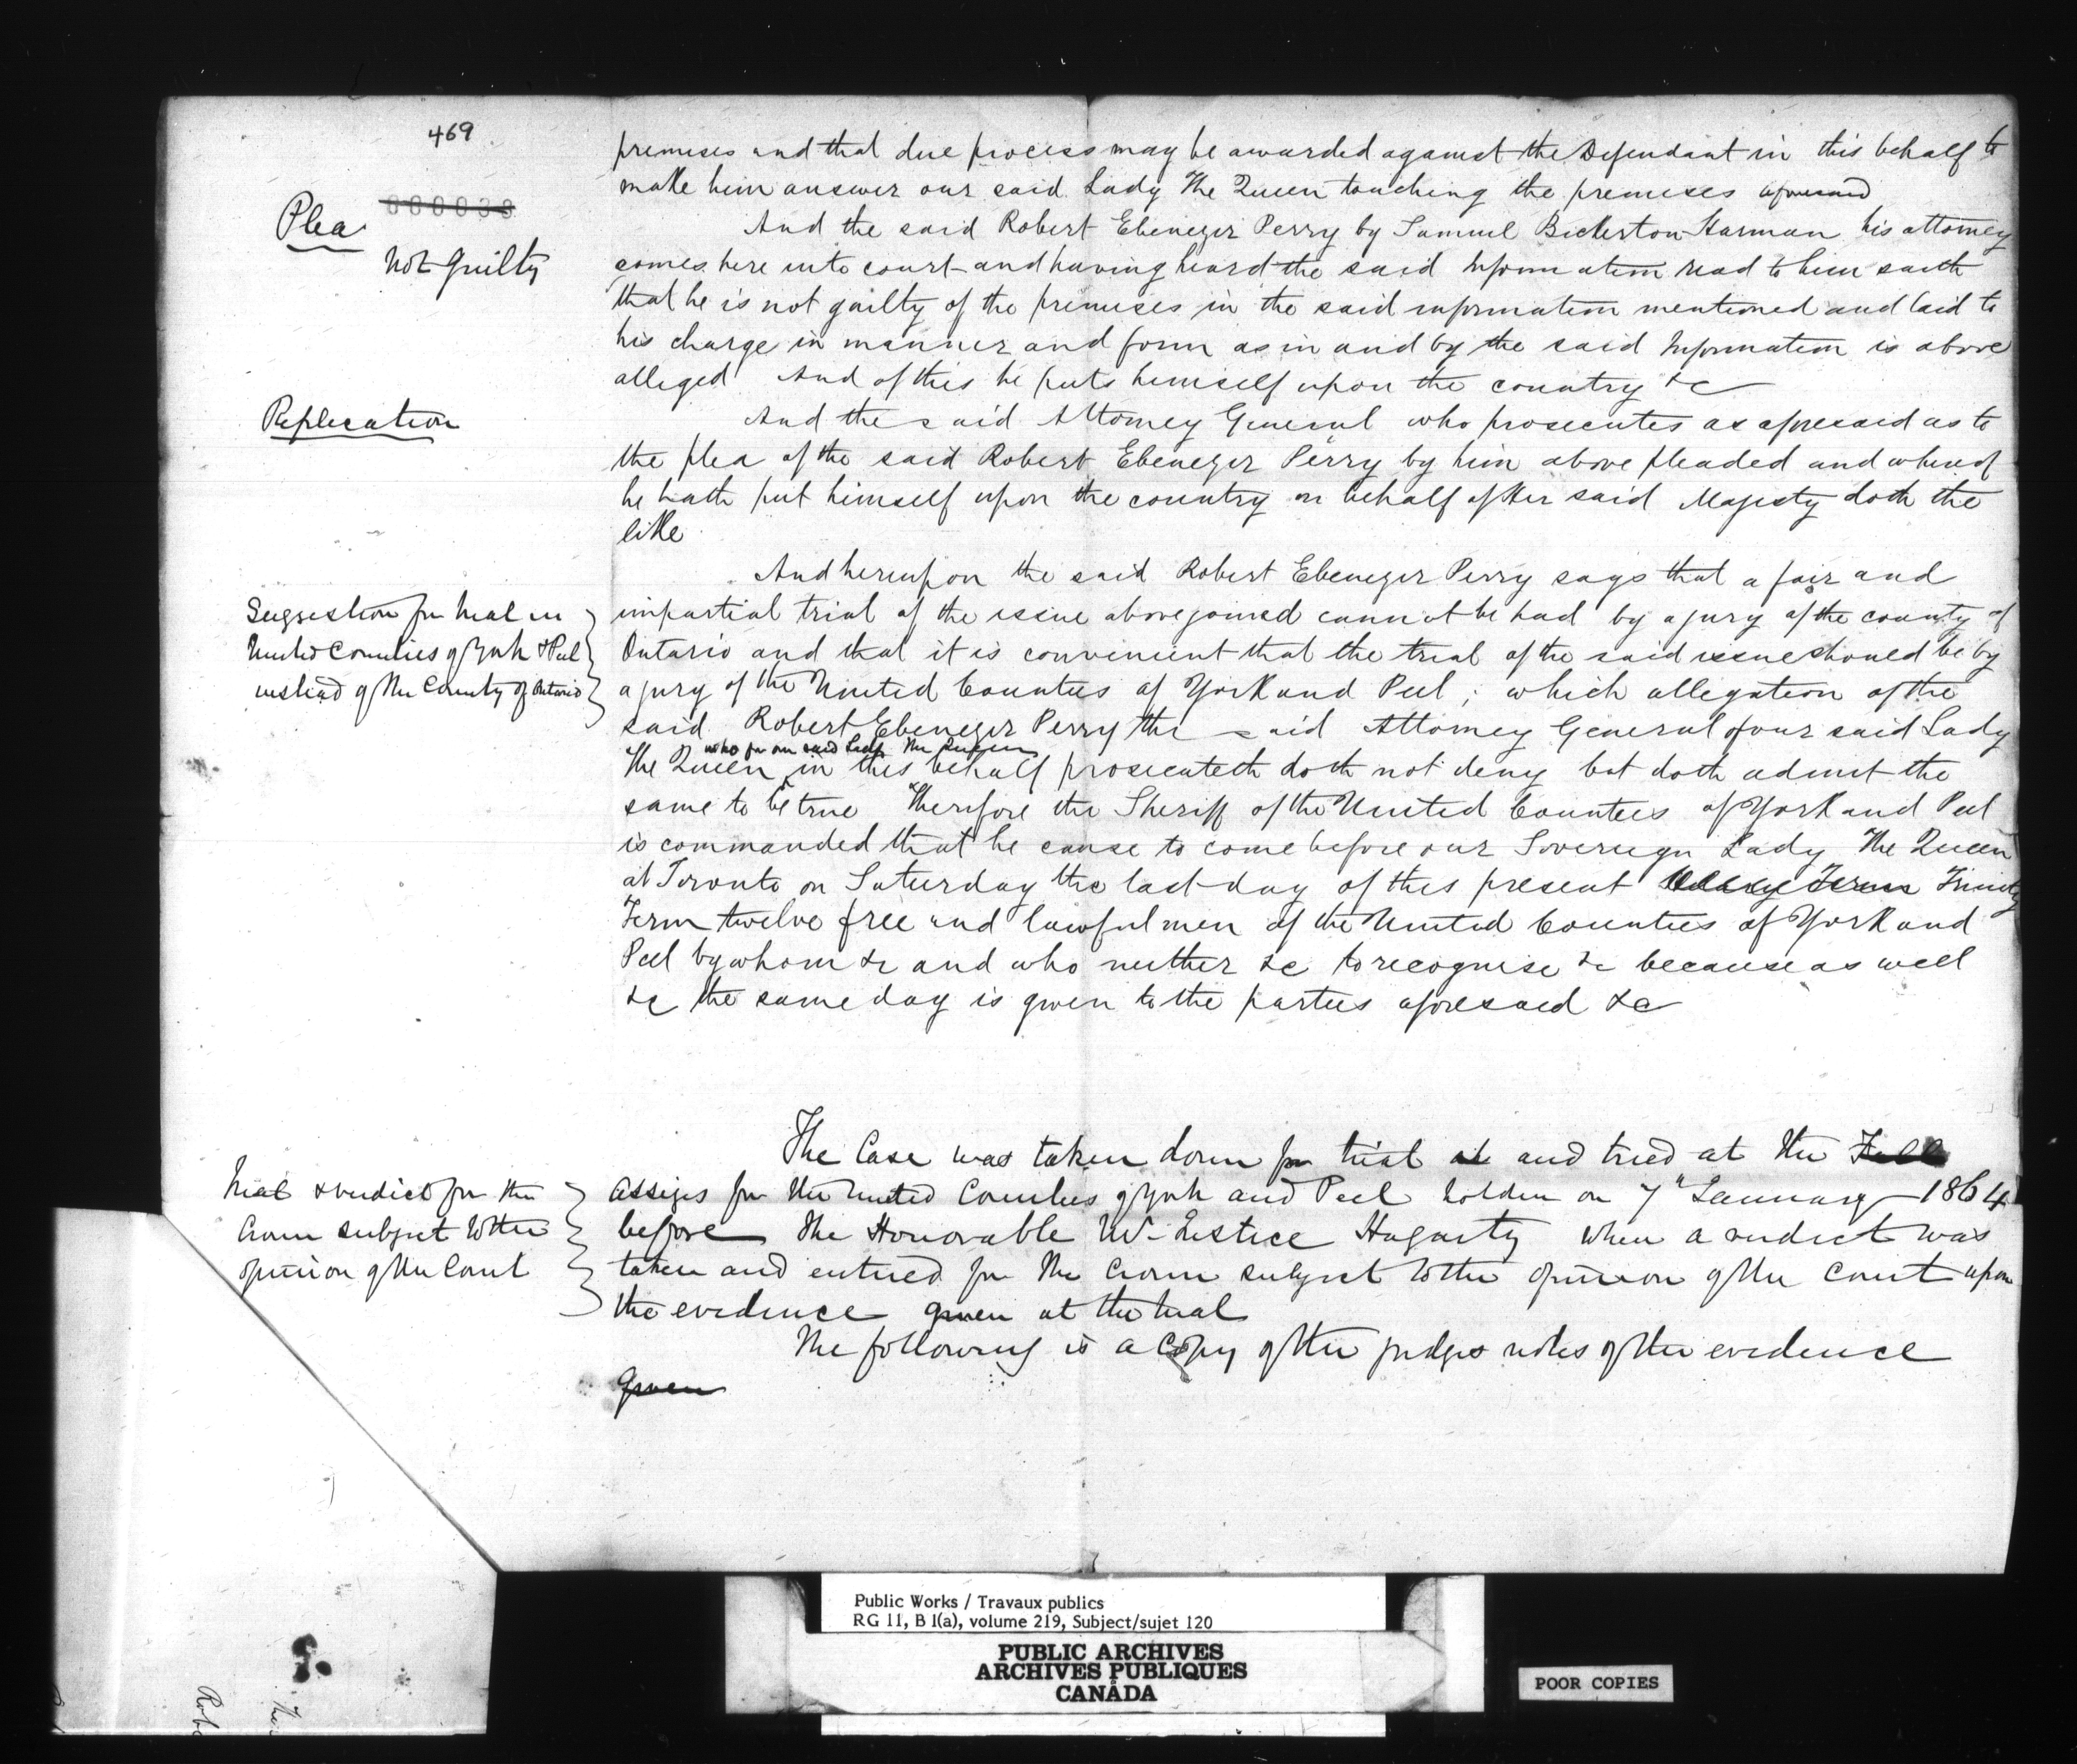 469
000033
Plea
Not Guilty
premises and that due process may be awarded against the Defendant in this behalf to
make him answer our said Lady The Queen touching the premises aforesaid
And the said Robert Ebenezer Perry by Samuel Bickerton Harman his attorney
comes here into court and having heard the said Information read to him saith
that he is not guilty of the premises in the said information mentioned and laid to
his charge in manner and form as in and by the said Information is above
alleged And of this he puts himself upon the country &c
Replication
And the said Attorney General who prosecutes as aforesaid as to
the plea of the said Robert Ebenezer Perry by him above pleaded and whereof
he hath put himself upon the country on behalf of Her said Majesty doth the
like
And hereupon the said Robert Ebenezer Perry says that a fair and
Suggestion for trial in
United Counties of York & Peel
instead of the County of Ontario
impartial trial of the issue above joined cannot be had by a jury of the county of
Ontario and that it is convenient that the trial of the said issue should be by
a jury of the United Counties of York and Peel ; which allegation of the
said Robert Ebenezer Perry the said Attorney General of our said Lady
who for our said Lady the Queen
The Queen in this behalf prosecuteth doth not deny but doth admit the
same to be true Therefore the Sheriff of the United Counties of York and Peel
is commanded that he cause to come before our Sovereign Lady The Queen
at Toronto on Saturday the last day of this present Term Trinity
Term twelve free and lawful men of the United Counties of York and
Peel by whom &c and who neither &c to recognise &c because as well
&c the same day is given to the parties aforesaid &c
The Case was taken down for trial at and tried at the Fall
Trial & verdict for the
Crown subject to the
opinion of the Court
Assizes for the United Counties of York and Peel holden on 7" January 1864
before The Honorable Mr Justice Hagarty when a verdict was
taken and entered for the Crown subject to the opinion of the Court upon
the evidence given at the trial
The following is a Copy of the judges notes of the evidence
given
Public Works / Travaux publics
RG 11, B 1(a), volume 219, Subject/sujet 120
PUBLIC ARCHIVES
ARCHIVES PUBLIQUES
CANADA
POOR COPIES